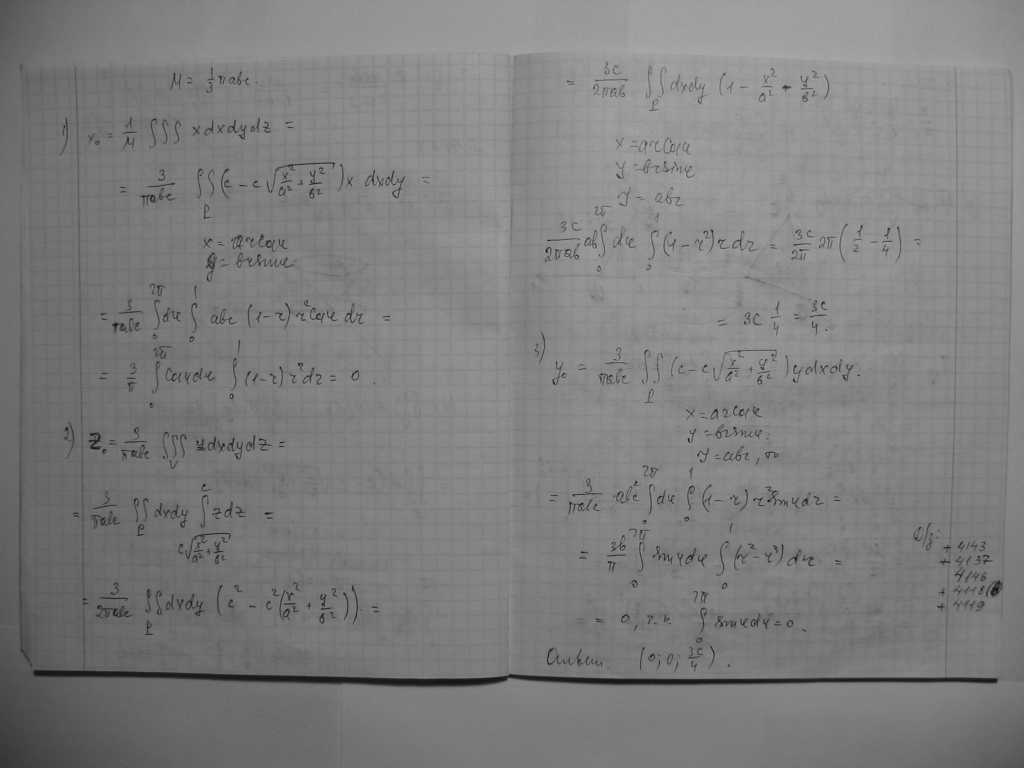 M = 1/3 πabc.
1) x₀ = 1/M ∫∫∫ x dx dy dz =
= 3/πabc ∫∫_P (c − c√(x²/a² + y²/b²)) x dx dy =
x = ar cos φ
y = br sin φ
= 3/πabc ∫₀^2π dφ ∫₀^1 abc (1−r) r² cos φ dr =
= 3/π ∫₀^2π cos φ dφ ∫₀^1 (1−r) r² dr = 0.
2) z₀ = 3/πabc ∫∫∫_V z dx dy dz =
= 3/πabc ∫∫_P dx dy ∫_{c√(x²/a² + y²/b²)}^c z dz =
= 3/2πabc ∫∫_P dx dy (c² − c²(x²/a² + y²/b²)) =
= 3c/2πab ∫∫_P dx dy (1 − x²/a² − y²/b²)
x = ar cos φ
y = br sin φ
J = abr
3c/2πab ab ∫₀^2π dφ ∫₀^1 (1−r²) r dr = 3c/2π 2π (1/2 − 1/4) =
= 3c 1/4 = 3c/4.
3) y₀ = 3/πabc ∫∫_P (c − c√(x²/a² + y²/b²)) y dx dy.
x = ar cos φ
y = br sin φ.
J = abr, то
= 3/πabc ab²c ∫₀^2π dφ ∫₀^1 (1−r) r² sin φ dr =
= 3b/π ∫₀^2π sin φ dφ ∫₀^1 (r² − r³) dr =
= 0, т.к. ∫₀^2π sin φ dφ = 0.
Ответ: (0; 0; 3c/4).
Д/з:
+ 4143
+ 4137
4146
+ 4118
+ 4119